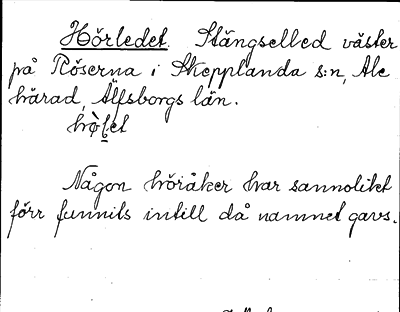 Hörledet. Stängselled väster
på Röserna i Skepplanda s:n, Ale
härad, Älfsborgs län.
hö̀let
Någon höråker har sannolikt
förr funnits intill då namnet gavs.